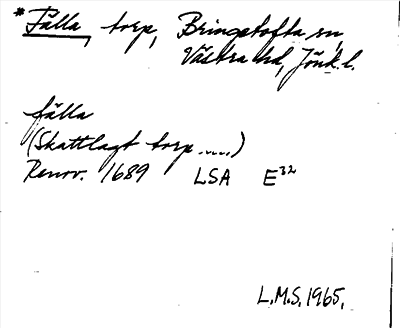 * Fälla, torp, Bringetofta sn,
Västra hd, Jönk. l.
fälla
(Skattlagt torp .....)
Renov. 1689 LSA E³²
L.M.S. 1965.